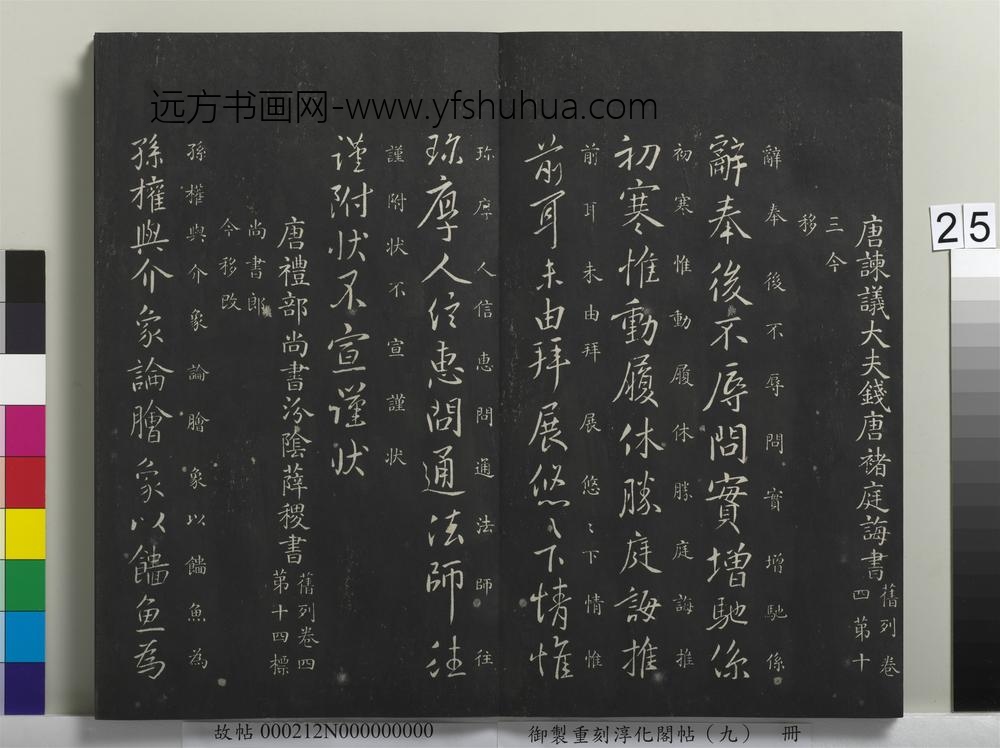 远方书画网-www.yfshuhua.com
25
唐諫議大夫錢唐褚庭誨書
舊列卷
四第十
三今
移
辭奉後不辱問實增馳係
辭奉後不辱問實增馳係
初寒惟動履休勝庭誨推
初寒惟動履休勝庭誨推
前耳未由拜展悠〻下情惟
前耳未由拜展悠〻下情惟
珎厚人信惠問通法師往
珎厚人信惠問通法師往
謹附状不宣謹状
謹附状不宣謹状
唐禮部尚書汾陰薛稷書
舊列卷四
第十四標
尚書郎
今移改
孫權與介象論膾象以鱃魚為
孫權與介象論膾象以鱃魚為
故帖 000212N000000000
御製重刻淳化閣帖（九） 冊